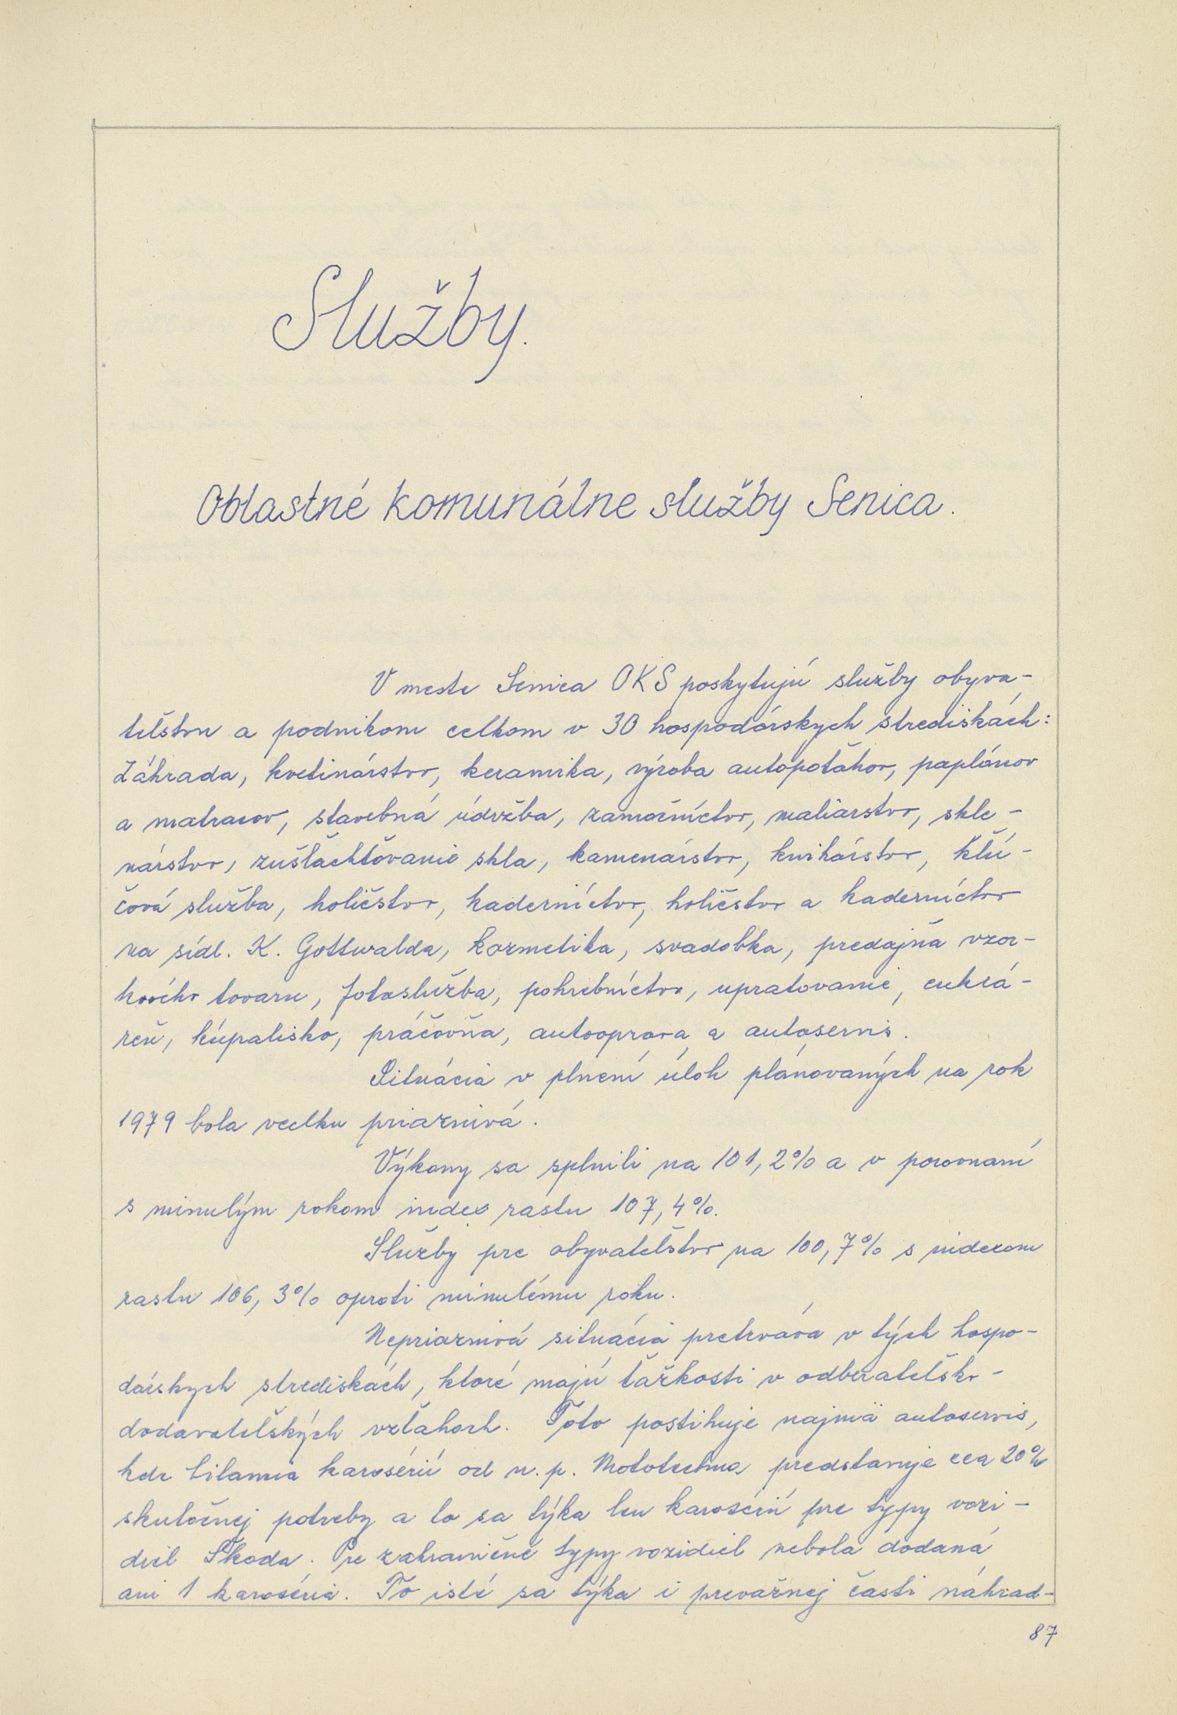 Služby.
Oblastné komunálne služby Senica.
V meste Senica OKS poskytujú služby obyva-
teľstvu a podnikom celkom v 30 hospodárskych strediskách:
Záhrada, kvetinárstvo, keramika, výroba autopoťahov, paplónov
a matracov, stavebná údržba, zamočníctvo, maliarstvo, skle-
nárstvo, zušľachťovanie skla, kamenárstvo, knihárstvo, kľú-
čová služba, holičstvo, kaderníctvo, holičstvo a kaderníctvo
na sídl. K. Gottwalda, kozmetika, svadobka, predajňa vzor-
kového tovaru, fotoslužba, pohrebníctvo, upratovanie, cukrá-
reň, kúpalisko, práčovňa, autooprava a autoservis.
Situácia v plnení úloh plánovaných na rok
1979 bola vcelku priaznivá.
Výkony sa splnili na 101,2% a v porovnaní
s minulým rokom index rastu 107,4%.
Služby pre obyvateľstvo na 100,7% s indexom
rastu 106,3% oproti minulému roku.
Nepriaznivá situácia pretrváva v tých hospo-
dárskych strediskách, ktoré majú ťažkosti v odberateľsko-
dodavateľských vzťahoch. Toto postihuje najmä autoservis,
kde bilancia karosérií od n. p. Mototechna predstavuje cca 20%
skutočnej potreby a to sa týka len karosérií pre typy vozi-
diel Škoda. Pre zahraničné typy vozidiel nebola dodaná
ani 1 karoséria. To isté sa týka i prevažnej časti náhrad-
87